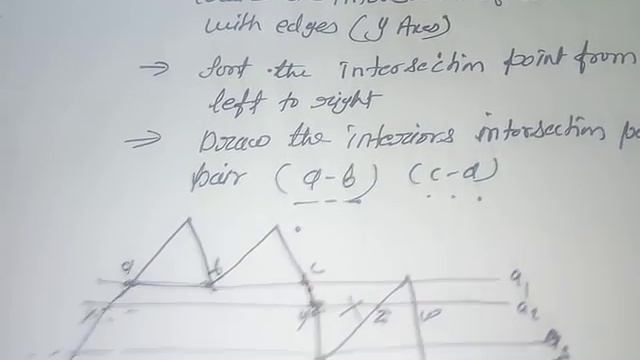 with edges (y Axes)
→ Sort the intersection point from
left to right
⇒ Draw the interiors intersection
pair (a-b) (c-d)
a b c a1
y z a2